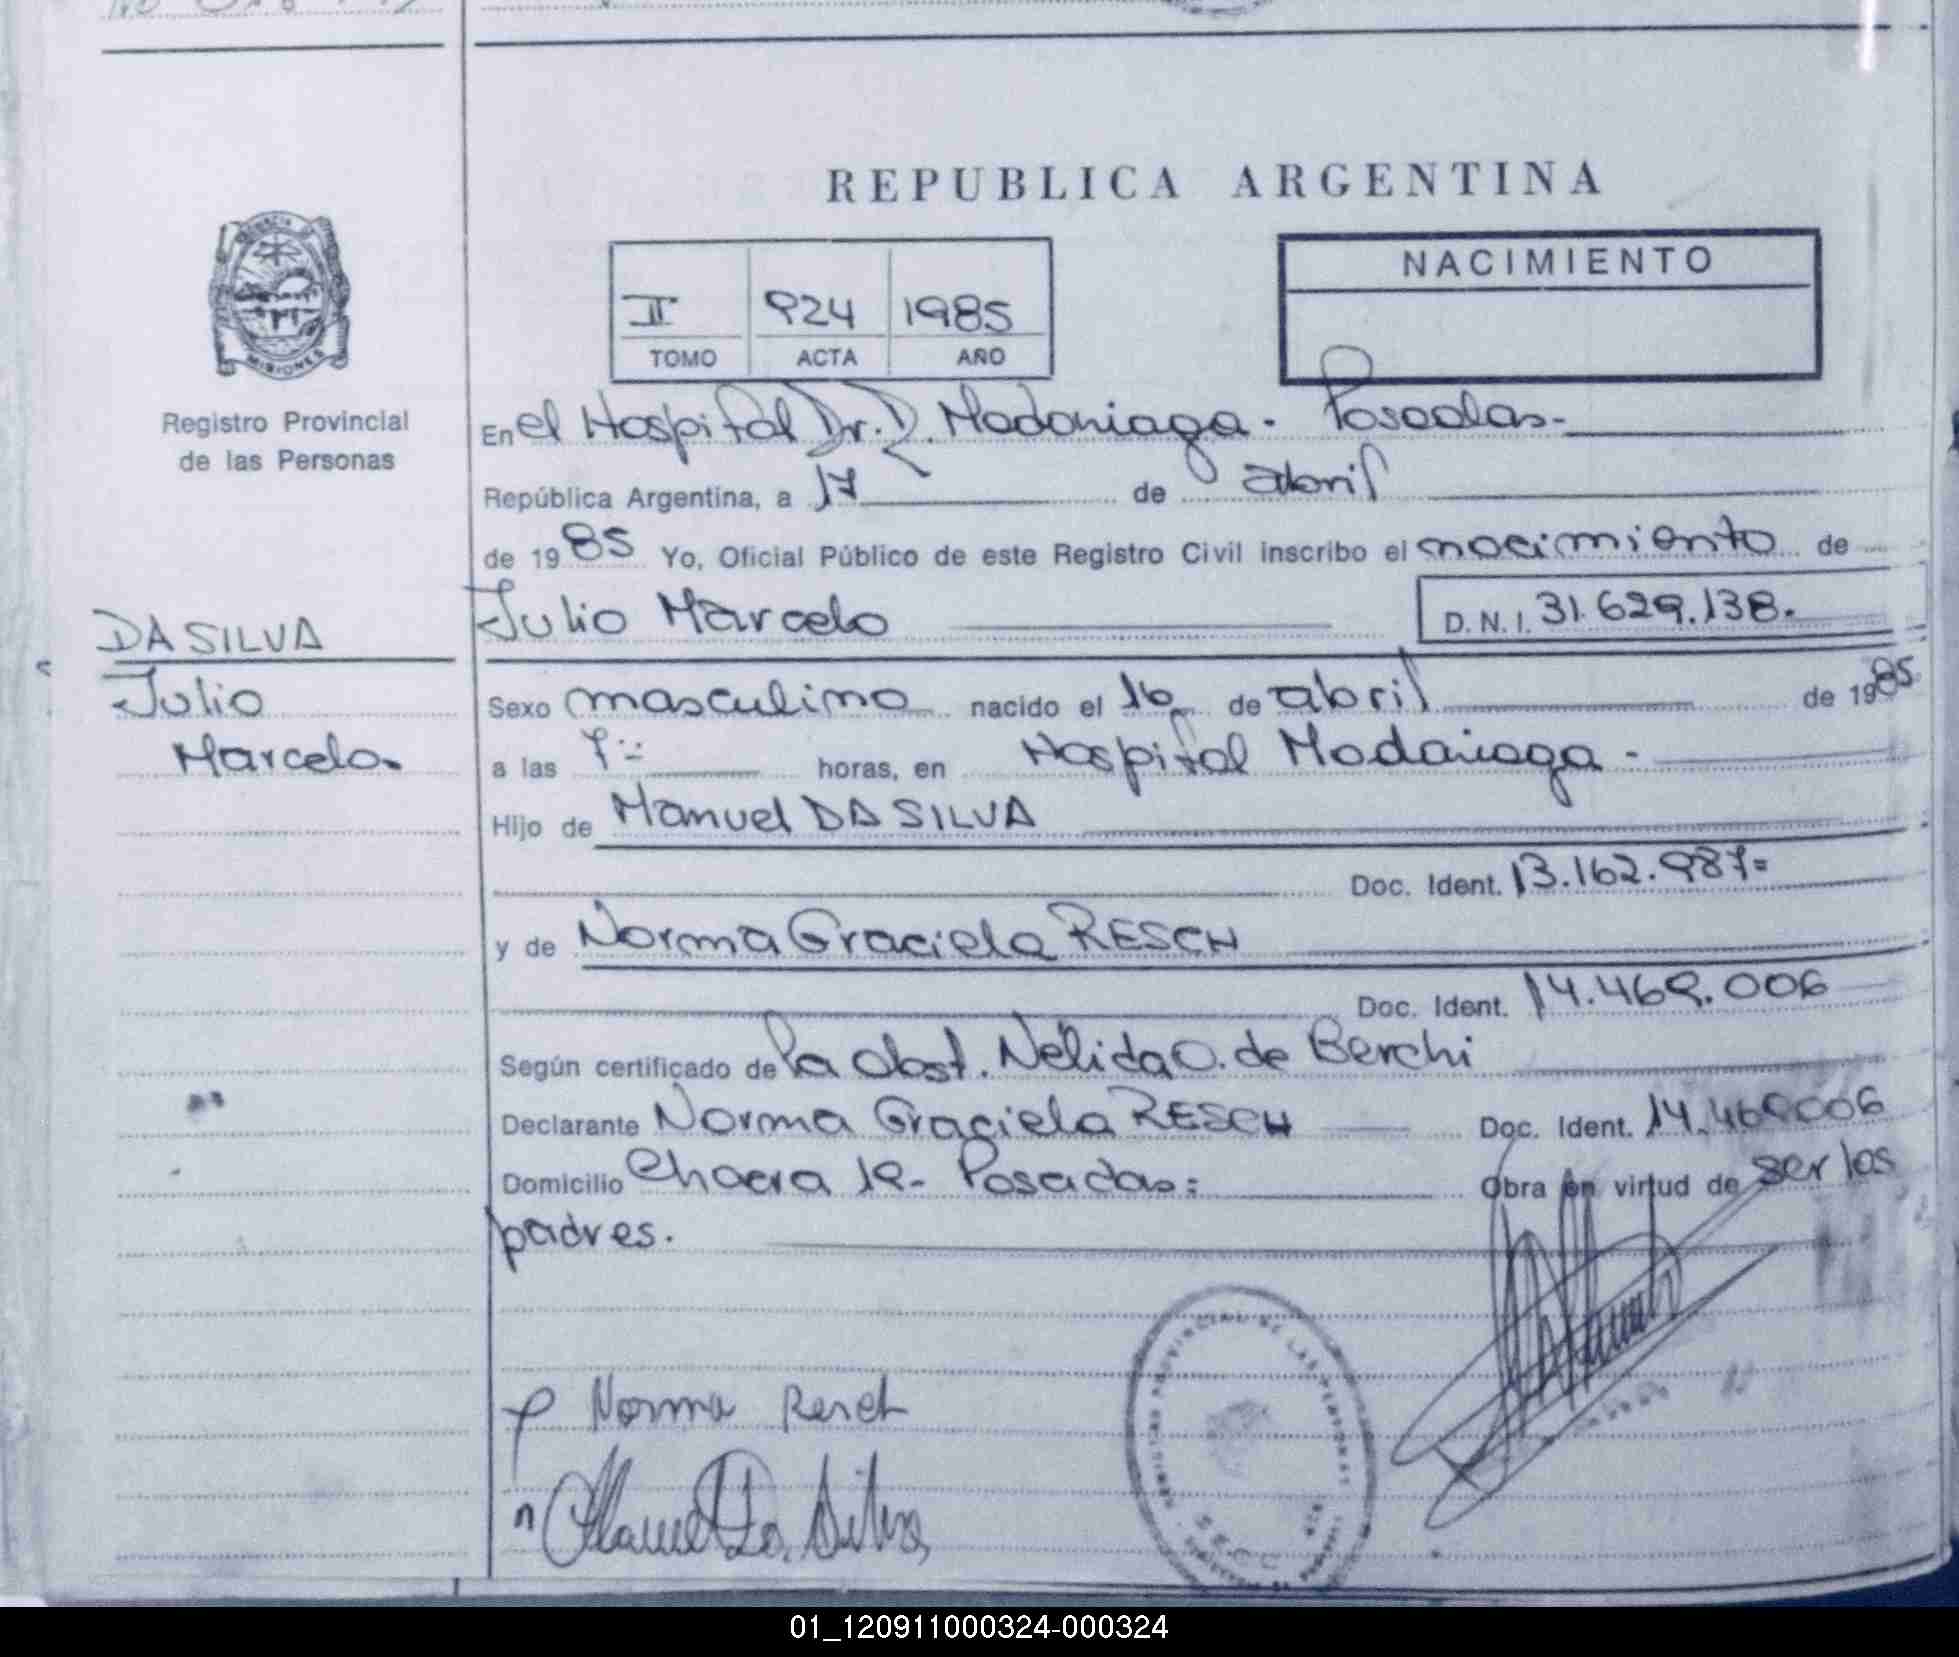 REPUBLICA ARGENTINA
NACIMIENTO
II 924 1985
TOMO ACTA AÑO
MISIONES
Registro Provincial
de las Personas
En el Hospital Dr. R. Madariaga - Posadas-
República Argentina, a 17 de abril
de 1985 Yo, Oficial Público de este Registro Civil inscribo el nacimiento de
Julio Marcelo D.N.I. 31.629.138.
DA SILVA
Julio
Marcelo
Sexo masculino nacido el 16 de abril de 1985
a las 7 horas, en Hospital Madariaga -
Hijo de Manuel DA SILVA
Doc. Ident. 13.162.987=
y de Norma Graciela RESCH
Doc. Ident. 14.469.006
Según certificado de la Obst. Nélida O. de Berchi
Declarante Norma Graciela RESCH Doc. Ident. 14.469006
Domicilio Chacra 12- Posadas= Obra en virtud de ser los
padres.
Norma Resch
Manuel Da Silva
01_120911000324-000324